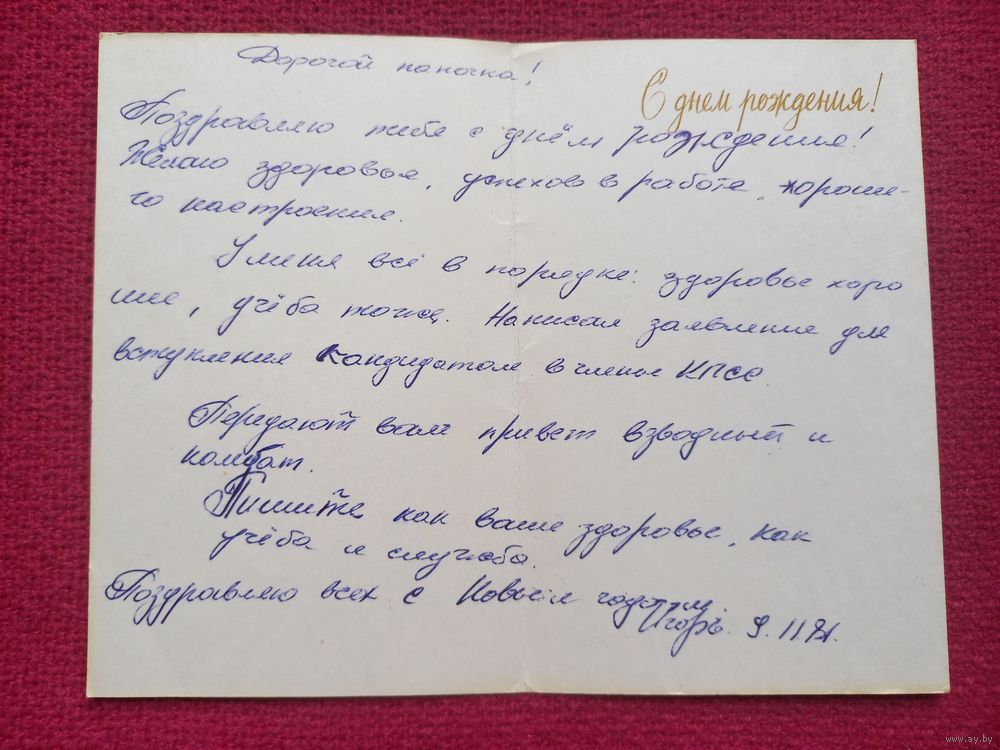 Дорогой папочка!
С днем рождения!
Поздравляю тебе с днём рождения!
Желаю здоровья, успехов в работе, хороше-
го настроения.
У меня всё в порядке: здоровье хоро
шее, учёба тоже. Написал заявление для
вступления кандидатом в члены КПСС
Передают вам привет взводный и
комбат.
Пишите как ваше здоровье, как
учёба и служба.
Поздравляю всех с Новым годом.
Игорь. 9.11.
www.ay.by